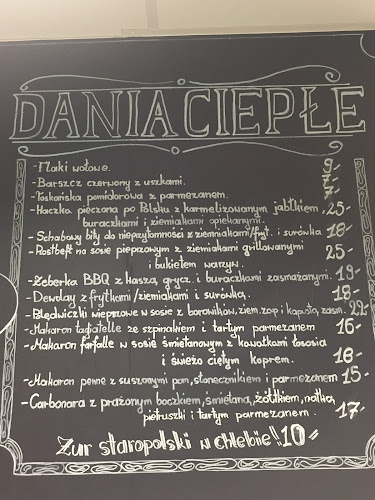 DANIA CIEPŁE
- Flaki wołowe. 9-
- Barszcz czerwony z uszkami. 7-
- Toskańska pomidorowa z parmezanem. 7-
- Kaczka pieczona po Polsku z karmelizowanym jabłkiem, 25-
buraczkami i ziemniakami opiekanymi.
- Schabowy bity do nieprzytomności z ziemniakami/fryt. i surówką 18-
- Rostbeff na sosie pieprzowym z ziemniakami grillowanymi 25-
i bukietem warzyw.
- Żeberka BBQ z kaszą grycz. i buraczkami zasmażanymi. 19-
- Dewolay z frytkami/ziemniakami i surówką. 18-
- Blędwiczki wieprzowe w sosie z borowików, ziem. zap i kapustą zasm. 22-
- Makaron tagiatelle ze szpinakiem i tartym parmezanem 16-
- Makaron farfalle w sosie śmietanowym z kawałkami łososia
i świeżo ciętym koprem. 16-
- Makaron penne z suszonymi pom, słonecznikiem i parmezanem 15-
- Carbonara z prażonym boczkiem, śmietaną, żółtkiem, natką,
pietruszki i tartym parmezanem. 17-
Żur staropolski w chlebie! 10=